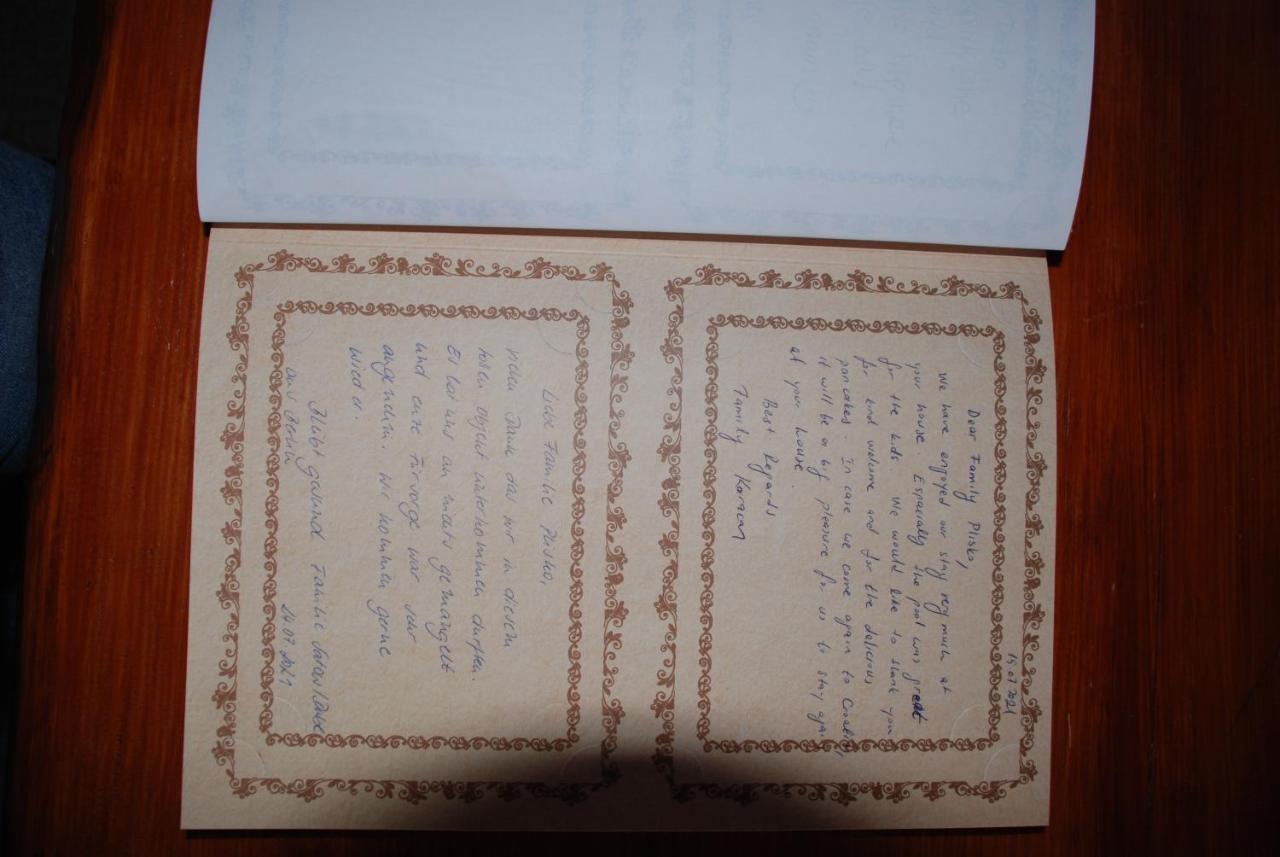 15.07.2021
Dear Family Plisko,
We have enjoyed our stay very much at
your house. Especially the pool was great
for the kids. We would like to thank you
for and welcome and for the delicious
pancakes. In case we come again to Croatia,
it will be a big pleasure for us to stay again
at your house.
Best Regards
Family
Liebe Familie Plisko,
vielen Dank das wir in diesem
tollen objekt unterkommen durften.
Es hat uns an nichts gemangelt
und eure Fürsorge war sehr
angenehm. Wir kommen gerne
wieder.
Bleibt gesund Familie
aus Berlin 24.07.2021